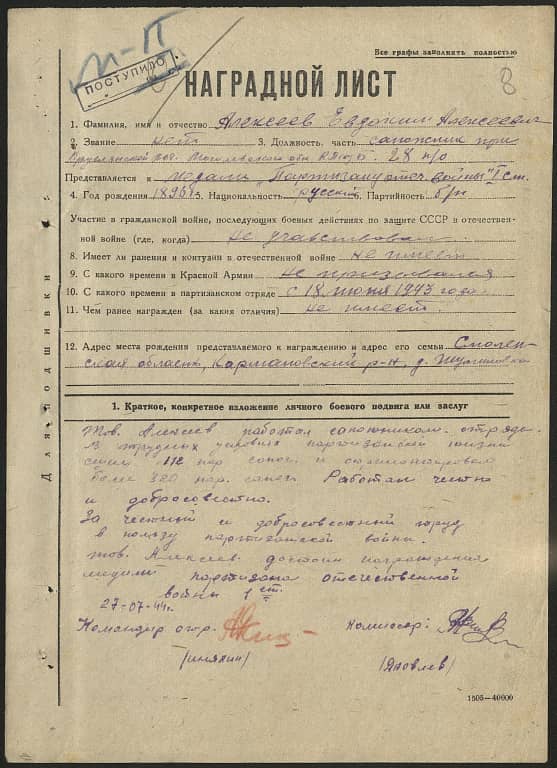 М-П
ПОСТУПИЛО
Все графы заполнить полностью
8
НАГРАДНОЙ ЛИСТ
1. Фамилия, имя и отчество Алексеев Евдоким Алексеевич
2. Звание нет 3. Должность, часть сапожник при
Могилевской обл. 28 п/о
Представляется к медали "Партизану отеч. войны" I ст.
4. Год рождения 1895 г. 5. Национальность русский 6. Партийность б/п
Участие в гражданской войне, последующих боевых действиях по защите СССР в отечествен-
ной войне (где, когда) Не участвовал
8. Имеет ли ранения и контузии в отечественной войне Не имеет
9. С какого времени в Красной Армии Не призывался
10. С какого времени в партизанском отряде с 18 июня 1943 года
11. Чем ранее награжден (за какия отличия) Не имеет.
12. Адрес места рождения представляемого к награждению и адрес его семьи Смолен-
ская область, Кармановский р-н, д.
Для подшивки
1. Краткое, конкретное изложение личного боевого подвига или заслуг
Тов. Алексеев работал сапожником отряда.
В трудных условиях партизанской жизни
сшил 112 пар сапог и отремонтировал
более 320 пар. сапог. Работал честно
и добросовестно.
За честный и добросовестный труд
в пользу партизанской войны.
тов. Алексеев достоин награждения
медали партизана отечественной
войны 1 ст.
27-07-44г.
Командир отр. Комиссар:
/Яковлев/
1505—40000